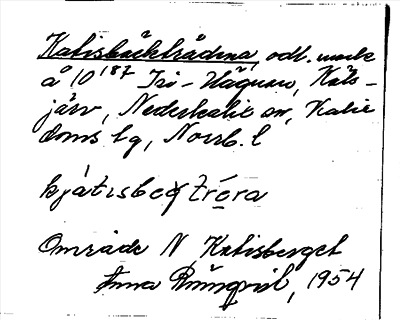 Katisbäckträdena, odl. mark
å 10¹⁸⁷ Tri-Häguan, Kåls-
järv, Nederkalix sn, Kalix
doms lg, Norrb. l
kjátisbeḳtrę́ra
Område N Katisberget
Anna Rönnqvist, 1954